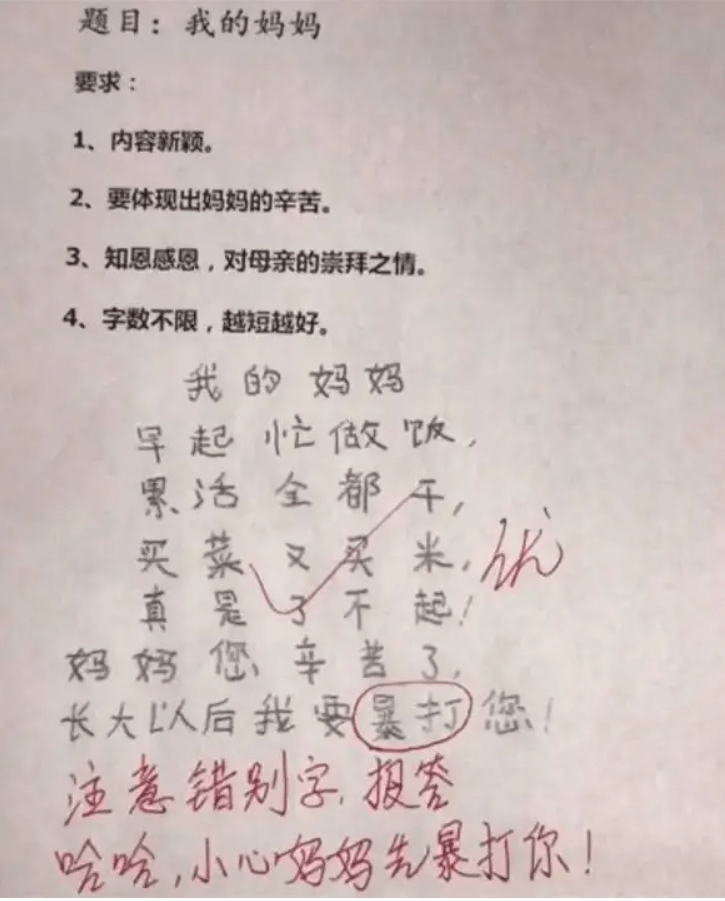 题目：我的妈妈
要求：
1、内容新颖。
2、要体现出妈妈的辛苦。
3、知恩感恩，对母亲的崇拜之情。
4、字数不限，越短越好。
我的妈妈
早起忙做饭，
累活全都干，
买菜又买米，
优
真是了不起！
妈妈您辛苦了，
长大以后我要暴打您！
注意错别字，报答
哈哈，小心妈妈先暴打你！